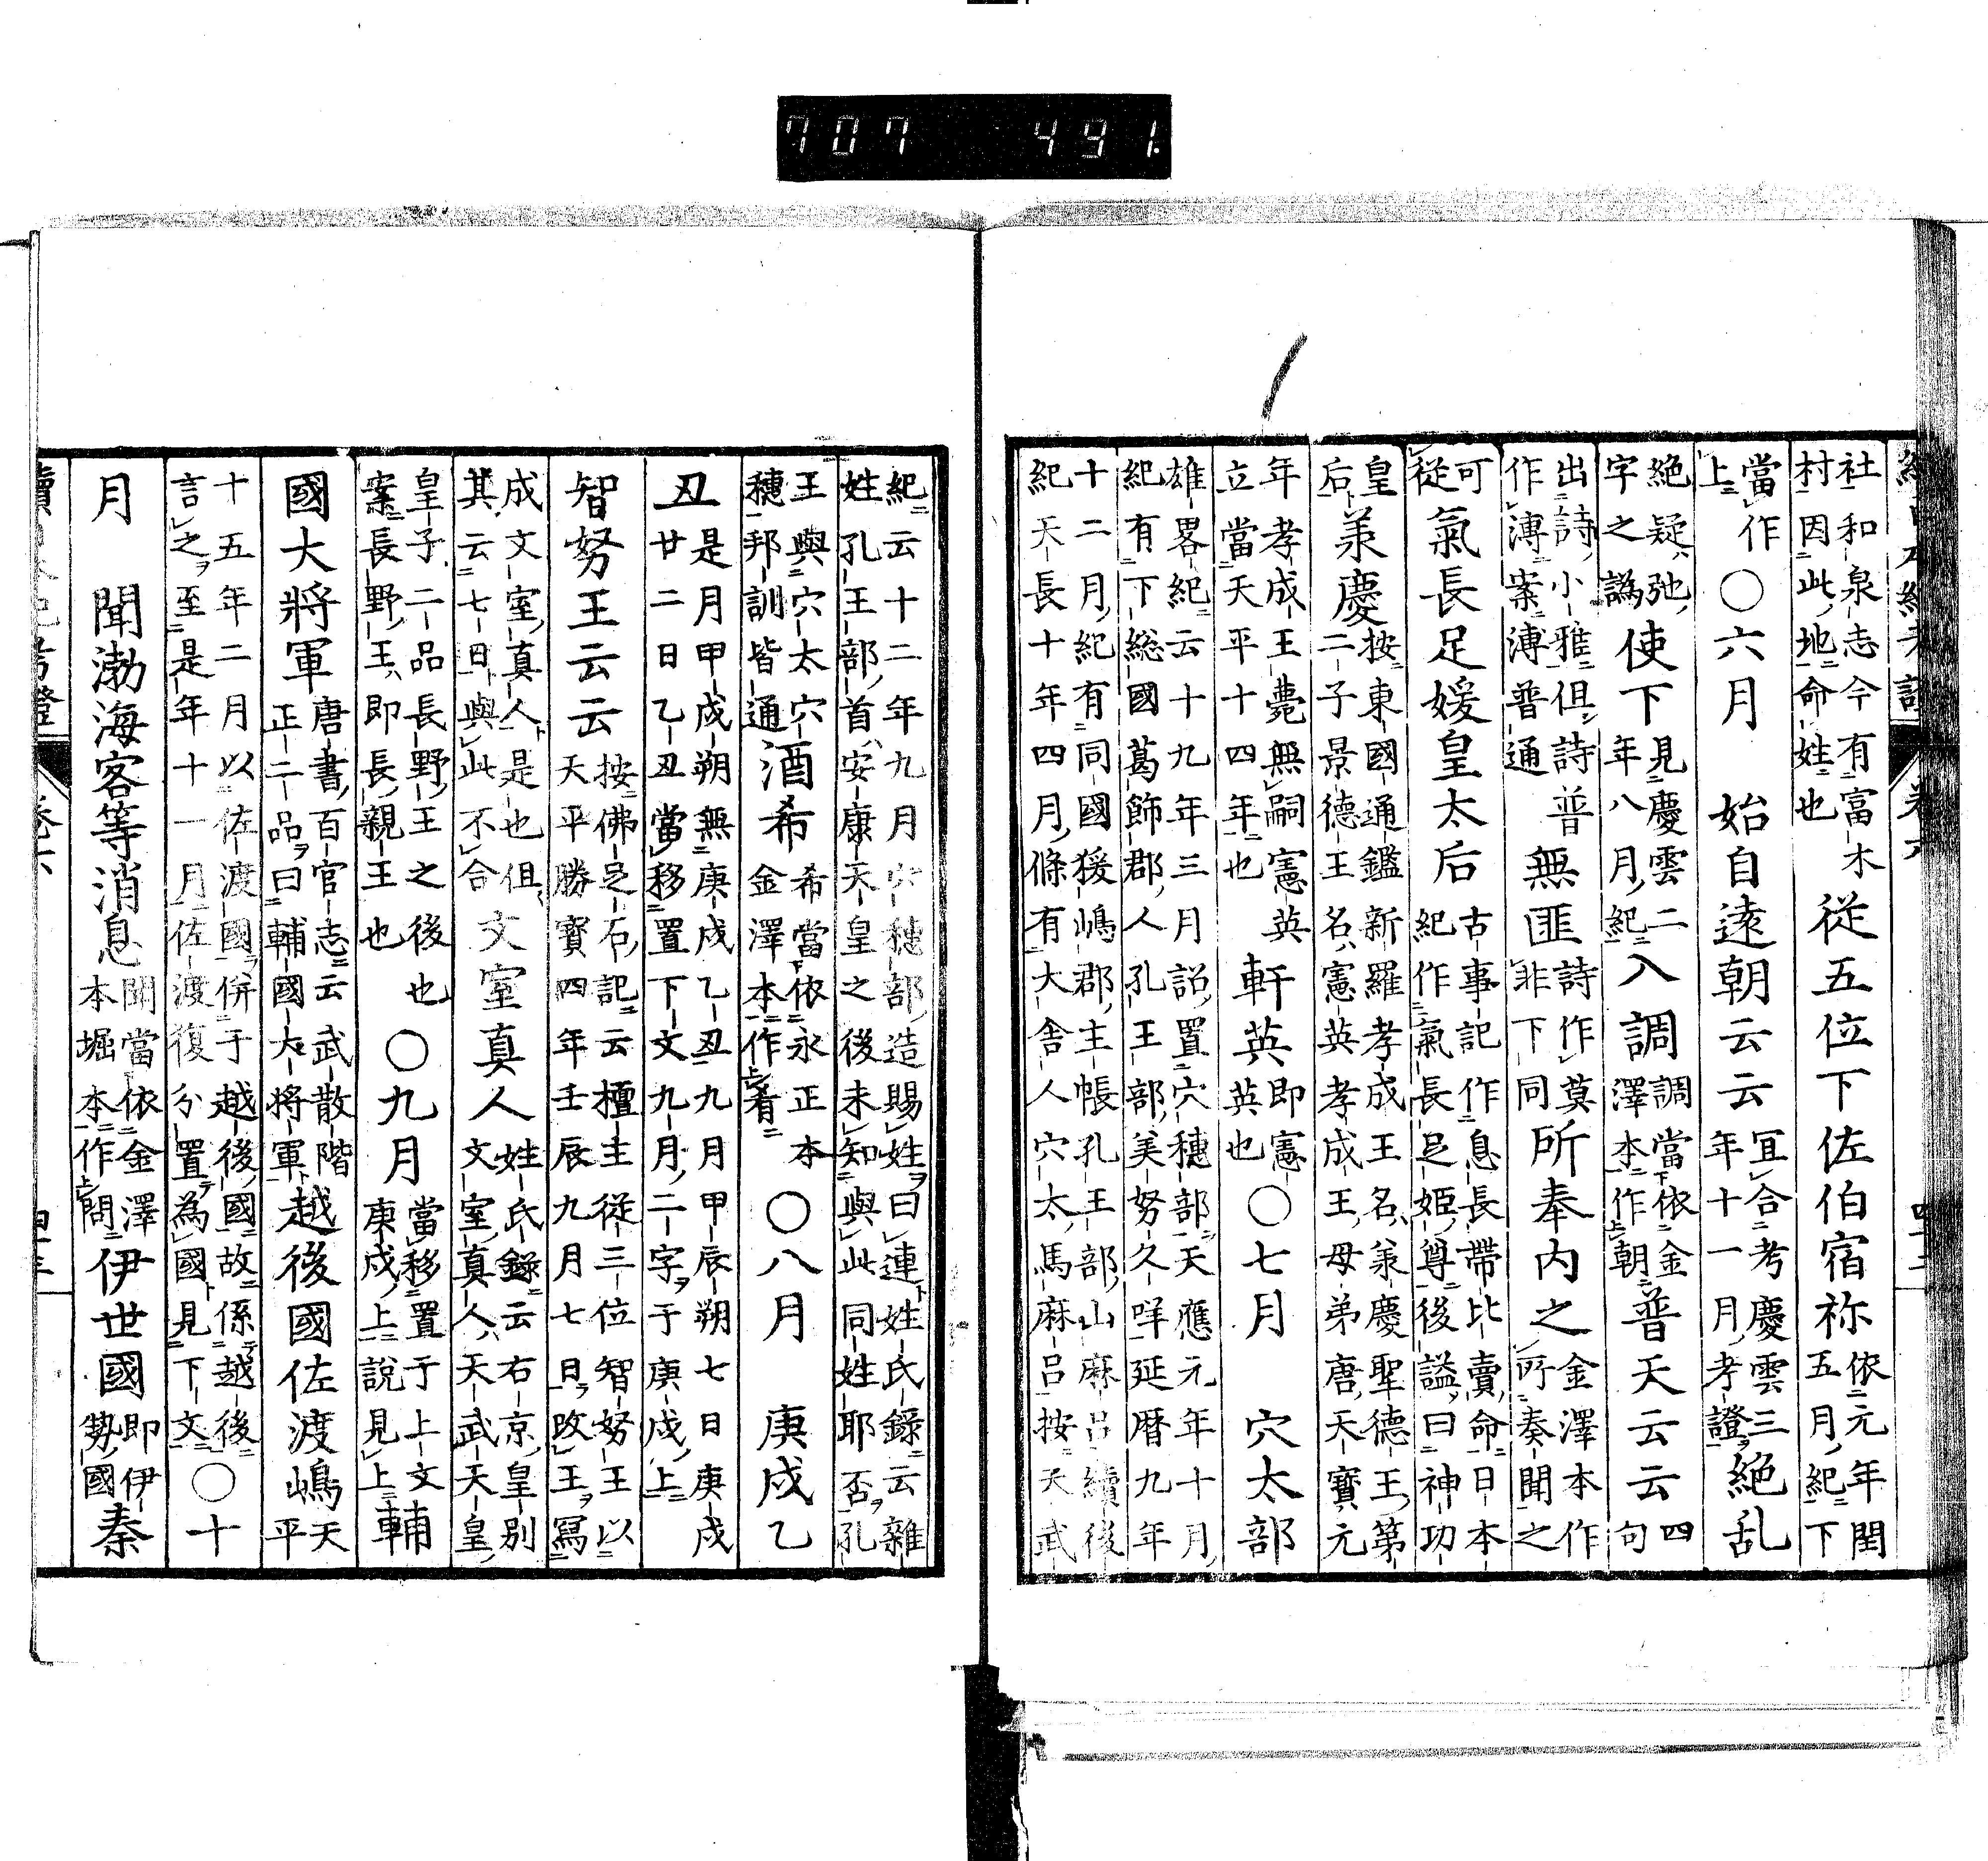 社和泉志今有富木
村因此地命姓也
從五位下佐伯宿祢
依元年閏
五月紀下
當作
上
○六月　始自遠朝云云
宜合考慶雲三
年十一月考證
絶乱
絶疑弛
字之譌
使下
見慶雲二
年八月紀
入調
調當依金
澤本作朝
普天云云
四
句
出詩小雅但詩普
作溥案溥普通
無匪
詩作莫
非下同
所奉内之
金澤本作
所奏聞之
可
從
氣長足媛皇太后
古事記作息長帶比賣命日本
紀作氣長足姫尊後謚曰神功
皇
后
羕慶
按東國通鑑新羅孝成王名羕慶聖德王第
二子景德王名憲英孝成王母弟唐天寶元
年孝成王薨無嗣憲英
立當天平十四年也
軒英
即憲
英也
○七月　穴太部
雄畧紀云十九年三月詔置穴穗部天應元年十月
紀有下総國葛餝郡人孔王部美努久咩延暦九年
十二月紀有同國猨嶋郡主帳孔王部山麻呂續後
紀天長十年四月條有大舎人穴太馬麻呂按天武
紀云十二年九月穴穗部造賜姓曰連姓氏錄云雜
姓孔王部首安康天皇之後未知與此同姓耶否孔
王與穴太穴
穗邦訓皆通
酒希
希當依永正本
金澤本作肴
○八月　庚戌乙
丑
是月甲戌朔無庚戌乙丑九月甲辰朔七日庚戌
廿二日乙丑當移置下文九月二字于庚戌上
智努王云云
按佛足石記云檀主從三位智努王以
天平勝寳四年壬辰九月七日改王寫
成文室真人是也但
其云七日與此不合
文室真人
姓氏錄云右京皇別
文室真人天武天皇
皇子二品長野王之後也
案長野王即長親王也
○九月
當移置于上文
庚戌上說見上
輔
國大將軍
唐書百官志云武散階
正二品曰輔國大將軍
越後國佐渡嶋
天
平
十五年二月以佐渡國併于越後國故係越後
言之至是年十一月佐渡復分置為國見下文
○十
月　聞渤海客等消息
聞當依金澤
本堀本作問
伊世國
即伊
勢國
秦